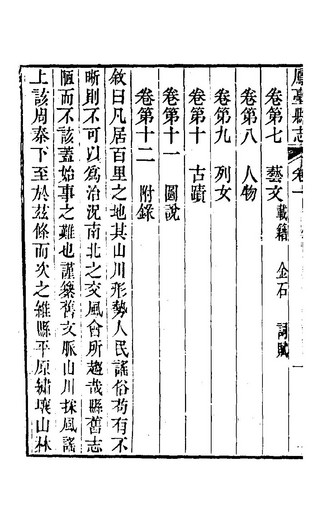 鳳臺縣志 卷一 一
卷第七 藝文 載籍 金石 詞賦
卷第八 人物
卷第九 列女
卷第十 古蹟
卷第十一 圖說
卷第十二 附錄
敘曰凡居百里之地其山川形勢人民謠俗苟有不
晰則不可以為治況南北之交風會所趨哉縣舊志
陋而不該蓋始事之難也謹纂舊文脈山川採風謠
上該周秦下至於茲條而次之維縣平原繡壤山林